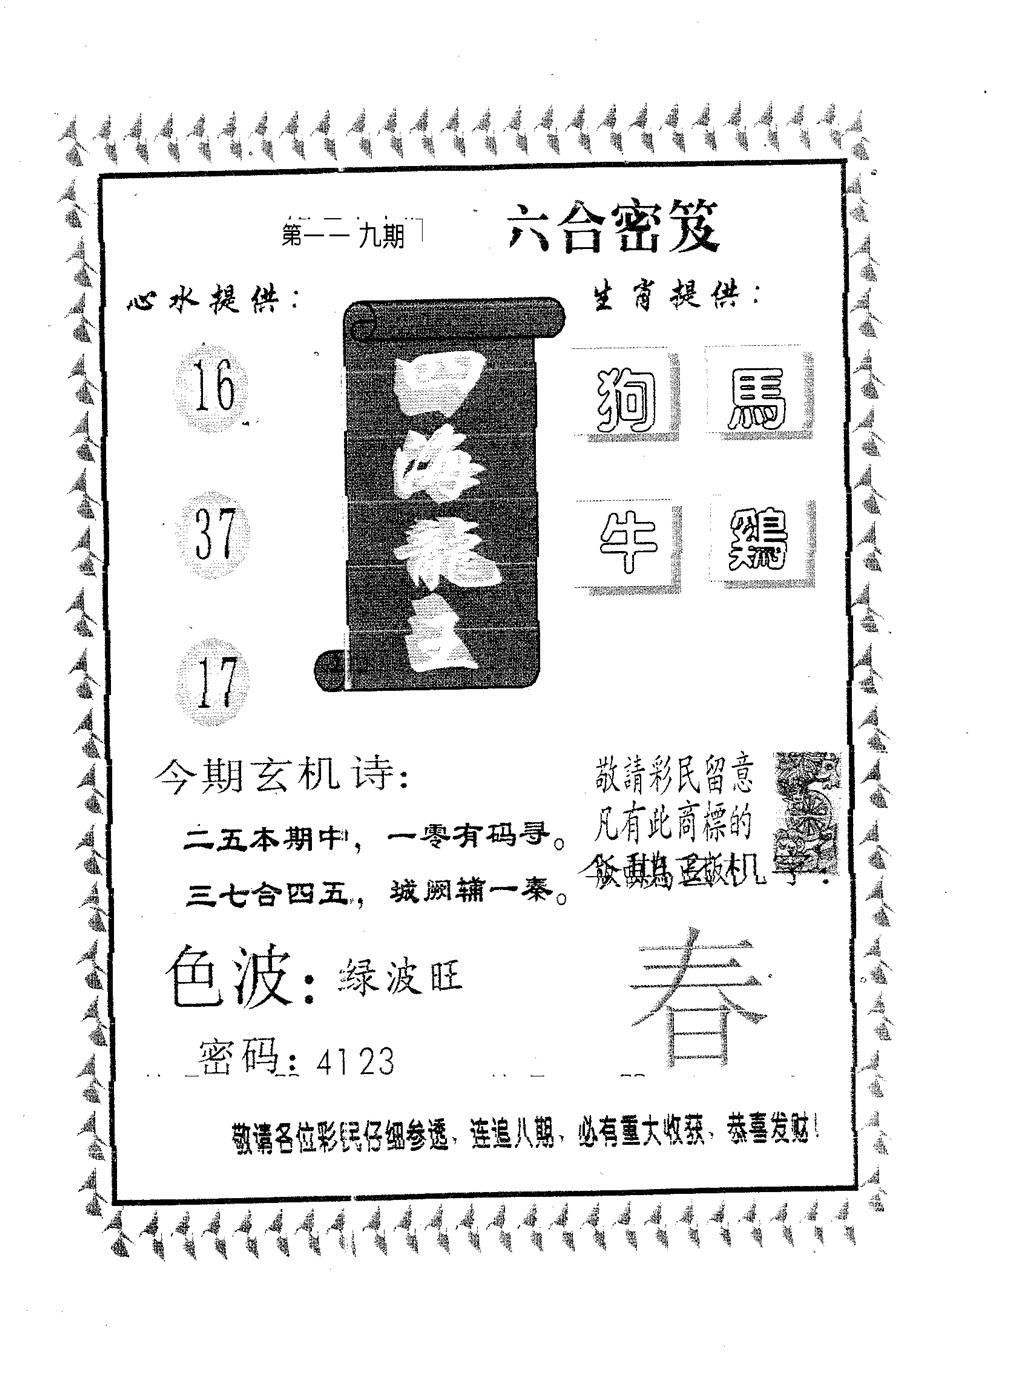 第一一九期
六合密笈
心水提供：
生肖提供：
16
37
17
四海龍王
狗
馬
牛
鷄
今期玄机诗：
二五本期中，一零有码寻。
三七合四五，城阙辅一秦。
敬請彩民留意
凡有此商標的
版面為正版
机字：
色波：绿波旺
春
密码：4123
敬请各位彩民仔细参透、连追八期、必有重大收获、恭喜发财！